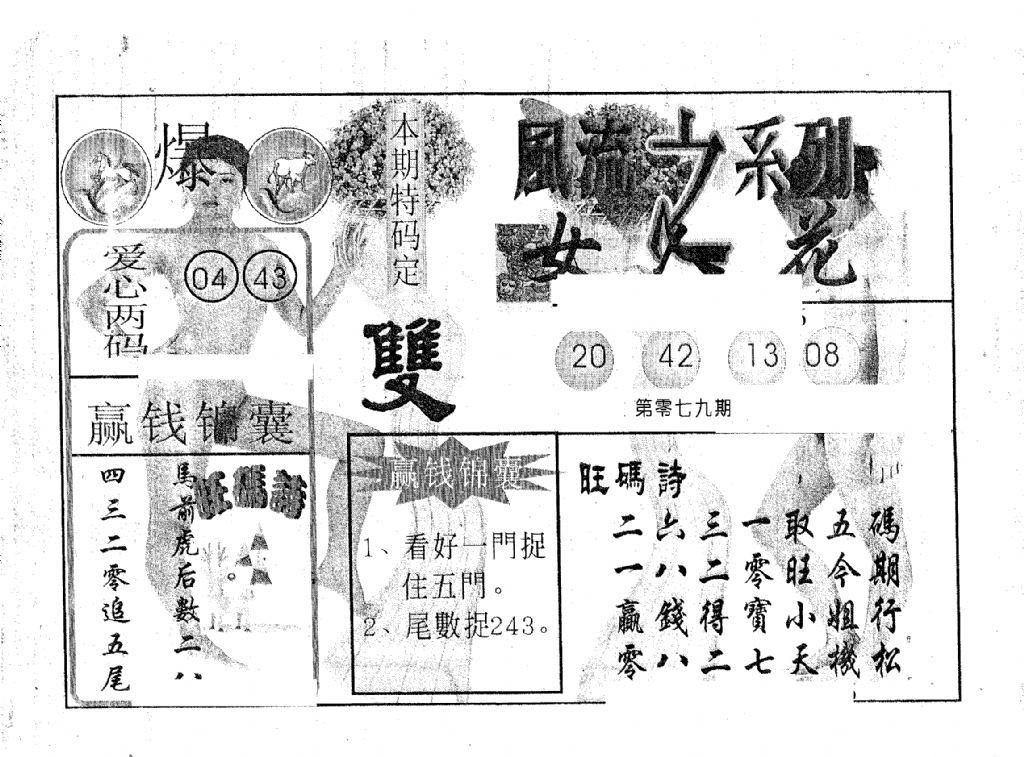 爆
爱心两码
04 43
赢钱锦囊
旺碼詩
馬前虎后數二八
四三二零追五尾
本期特码定
雙
风流之系列
女人花
20 42 13 08
第零七九期
赢钱锦囊
1、看好一門捉
住五門。
2、尾數捉243。
旺碼詩
碼期行松
五今姐機
取旺小天
一零寶七
三二得二
六八錢八
二一贏零